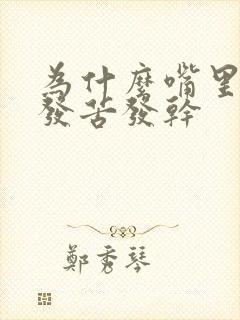 為什麼嘴里
發苦發幹
鄭秀琴